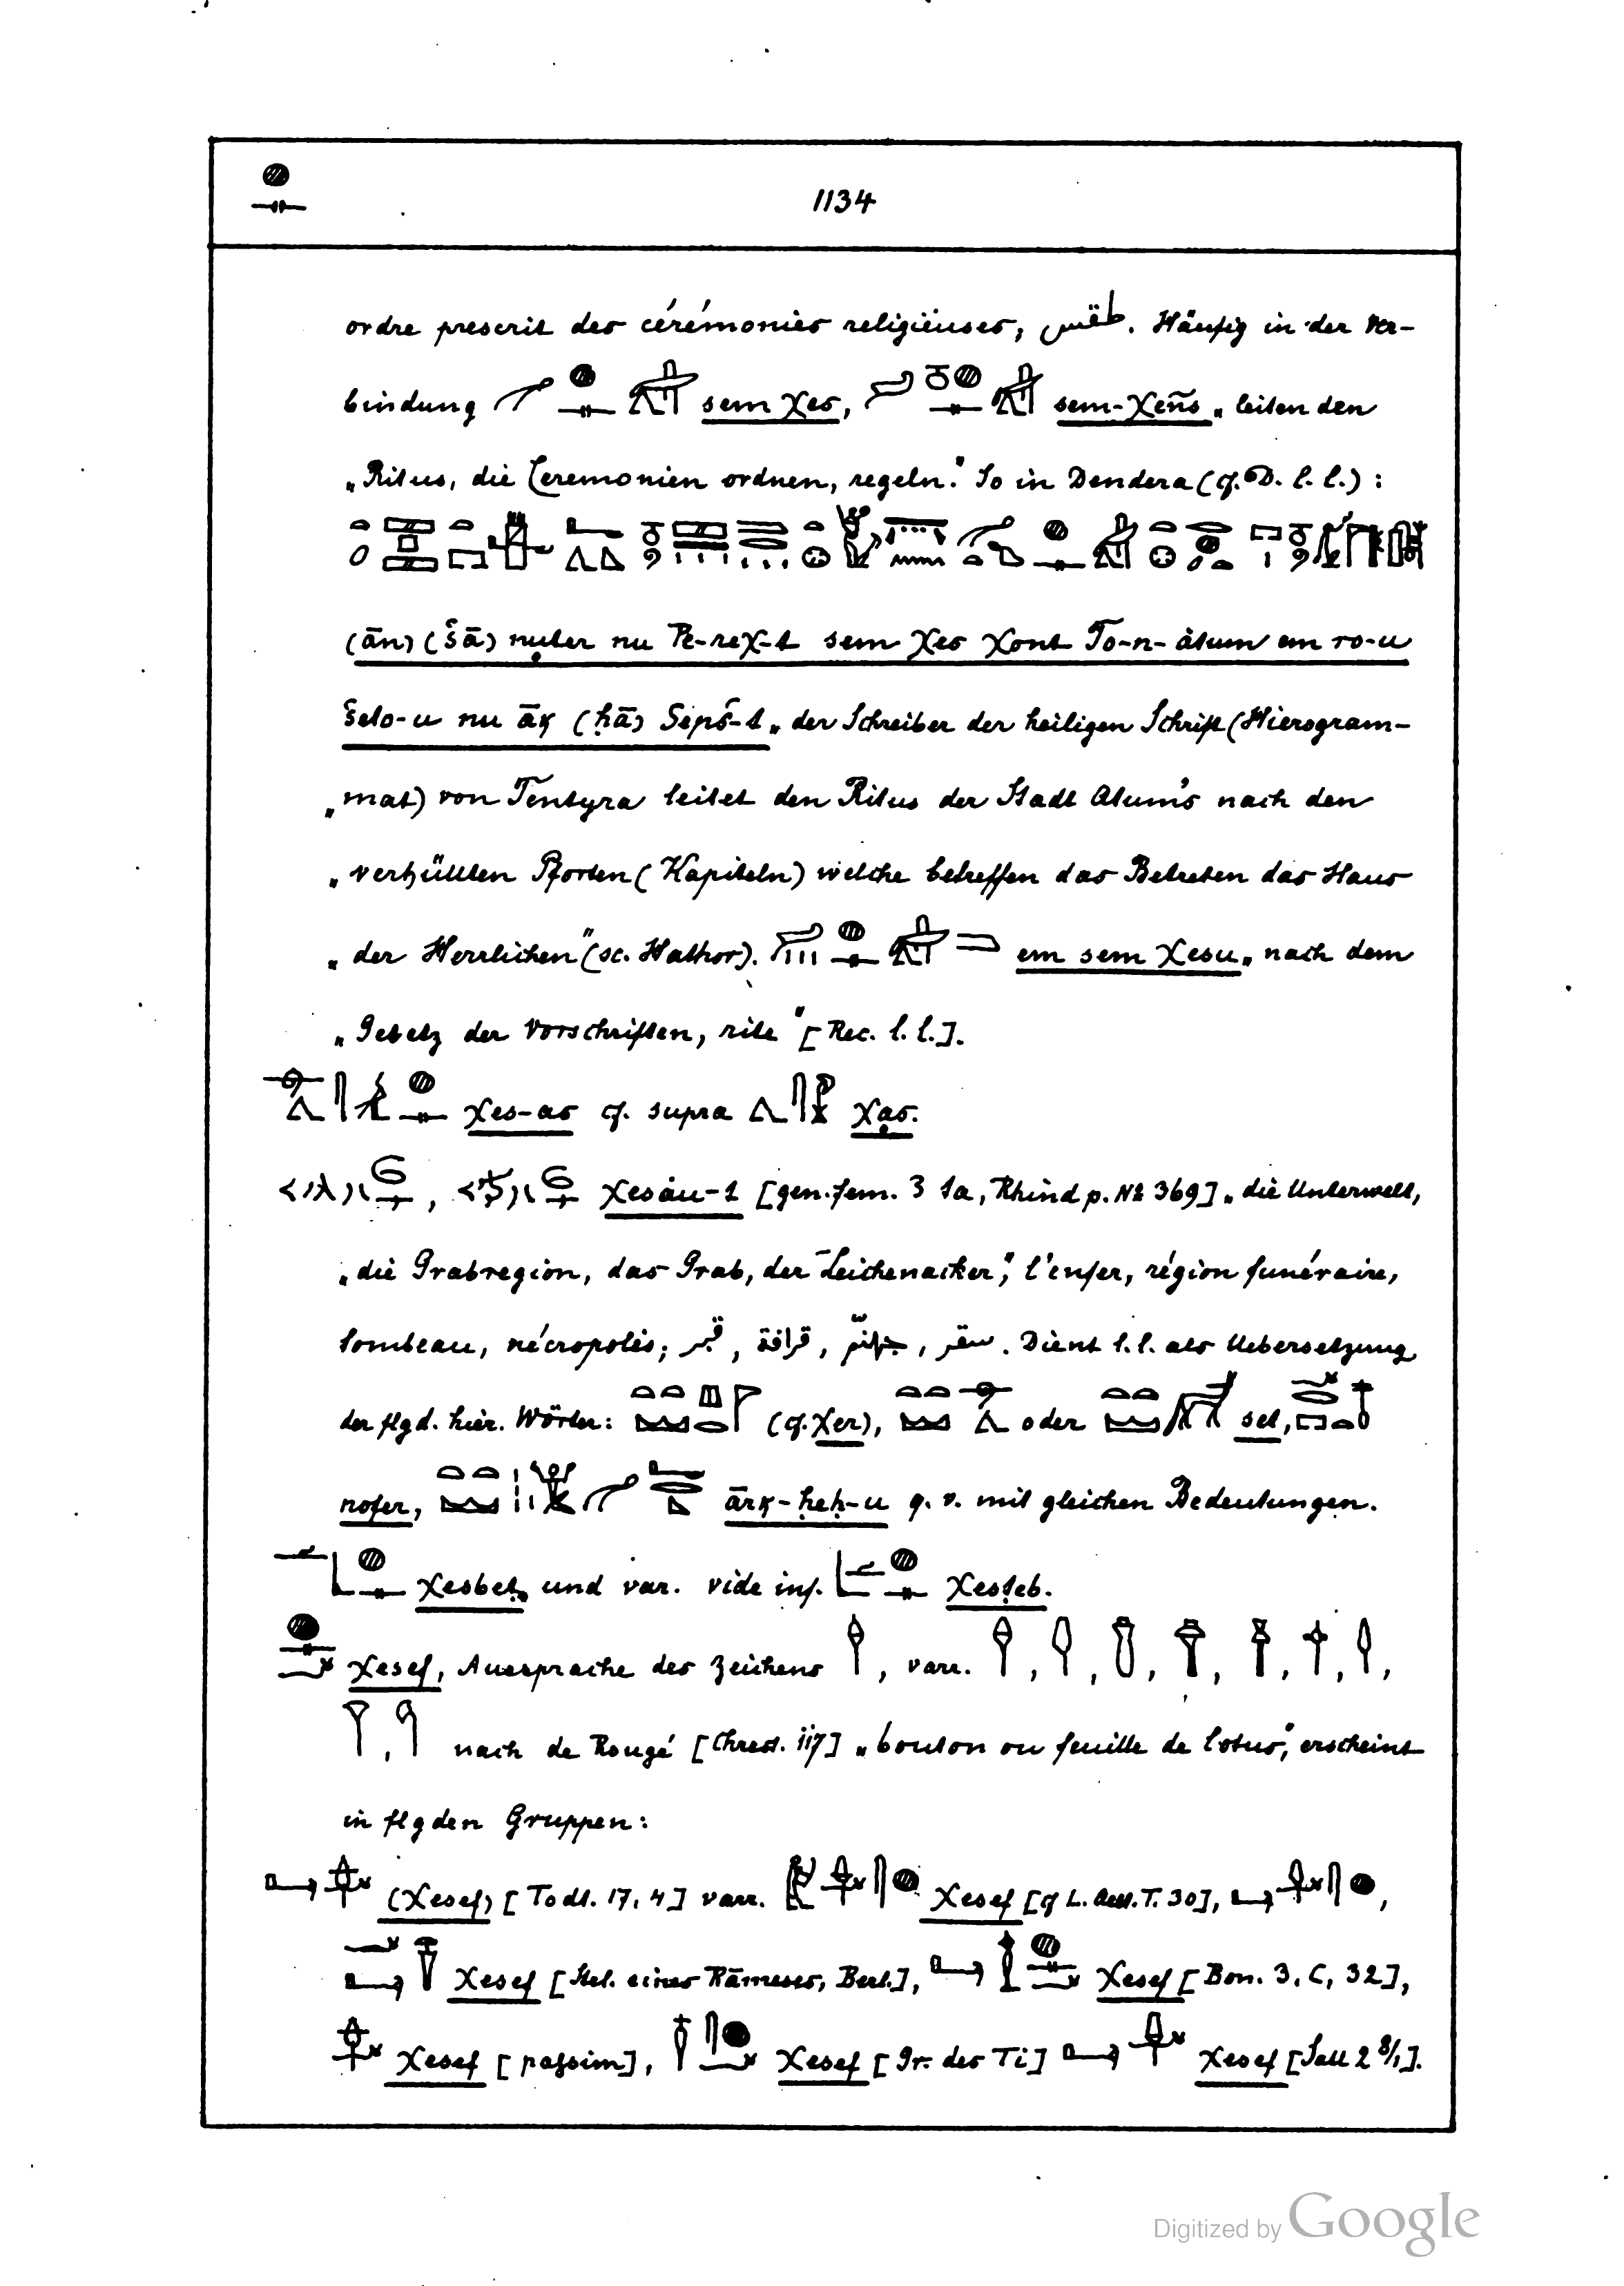 1134
ordre prescrit des cérémonies religieuses, طقس. Häufig in der Ver-
bindung sem χes, sem-χens̃ „leiten den
„Ritus, die Ceremonien ordnen, regeln." So in Dendera (cf. D. l. l.):
(ān) (šā) nuter nu Pe-reχ-t sem χes χont To-n-átum em ro-u
šeto-u nu āḳ (ḥā) Šepš-t „der Schreiber der heiligen Schrift (Hierogram-
„mat) von Tentyra leitet den Ritus der Stadt Atum's nach den
„verhüllten Pforten (Kapiteln) welche betreffen das Betreten das Haus
„der Herrlichen" (sc. Hathor). em sem χesu „nach dem
„Gesetz der Vorschriften, rite" [Rec. l. l.].
χes-as cf. supra χas.
, χesáu-t [gen. fem. 3 1a, Rhind p. № 369] „die Unterwelt,
„die Grabregion, das Grab, der Leichenacker", l'enfer, région funéraire,
tombeau, nécropolis; قبر, قرافة, جهنّم, سقر. Dient l. l. als Uebersetzung
der flgd. hier. Wörter: (cf. χer), oder set,
nofer, ārḳ-ḥeḥ-u q. v. mit gleichen Bedeutungen.
χesbeṭ und var. vide inf. χesṭeb.
χesef, Aussprache des Zeichens , varr. , , , , , , ,
, nach de Rougé [Chrest. 117] „bouton ou feuille de lotus", erscheint
in flgden Gruppen:
(χesef) [Todt. 17, 4] varr. χesef [cf L. Aelt. T. 30], ,
χesef [Stel. eines Rāmeses, Berl.], χesef [Bon. 3, C, 32],
χesef [passim], χesef [Gr. des Ti] χesef [Sall 2 8/1].
Digitized by Google